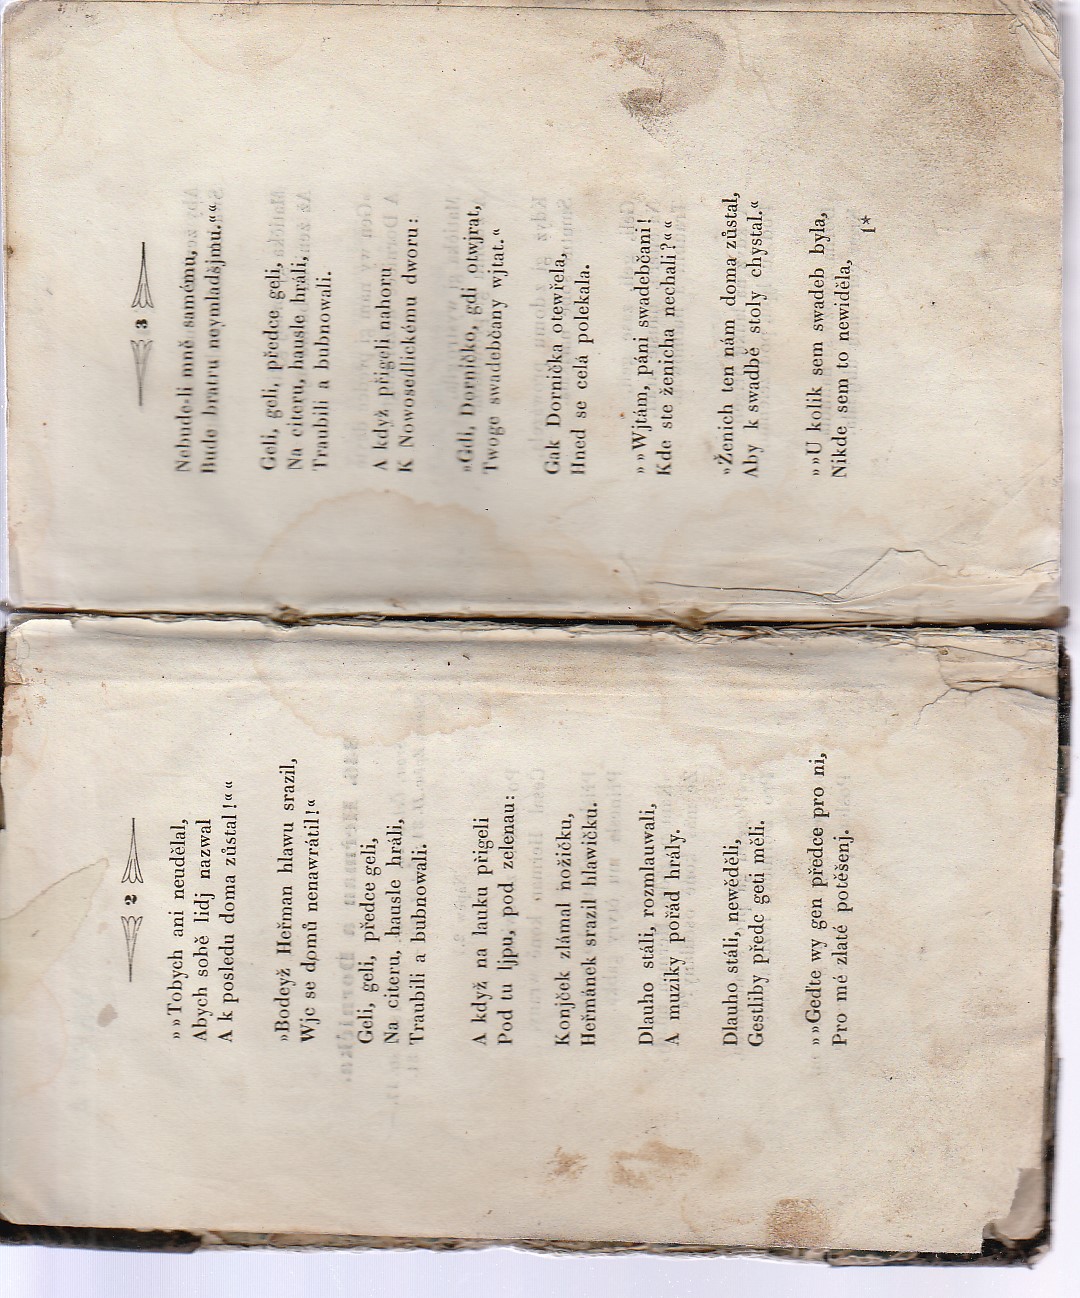 2
»»Tobych ani neudělal,
Abych sobě lidj nazwal
A k posledu doma zůstal!««
»Bodeyž Heřman hlawu srazil,
Wjc se domů nenawrátil!«
Geli, geli, předce geli,
Na citeru, hausle hráli,
Traubili a bubnowali.
A když na lauku přigeli
Pod tu ljpu, pod zelenau:
Konjček zlámal nožičku,
Heřmánek srazil hlawičku.
Dlauho stáli, rozmlauwali,
A muziky pořád hrály.
Dlauho stáli, newěděli,
Gestliby předc geti měli.
»»Geďte wy gen předce pro ni,
Pro mé zlaté potěšenj.
3
Nebude-li mně samému,
Bude bratru neymladšjmu.««
Geli, geli, předce geli,
Na citeru, hausle hráli,
Traubili a bubnowali.
A když přigeli nahoru
K Nowosedlickému dworu:
»Gdi, Dorničko, gdi otwjrat,
Twoge swadebčany wjtat.«
Gak Dornička otewřela,
Hned se celá polekala.
»»Wjtám, páni swadebčani!
Kde ste ženicha nechali?««
»Ženich ten nám doma zůstal,
Aby k swadbě stoly chystal.«
»»U kolik sem swadeb byla,
Nikde sem to newiděla,
1*